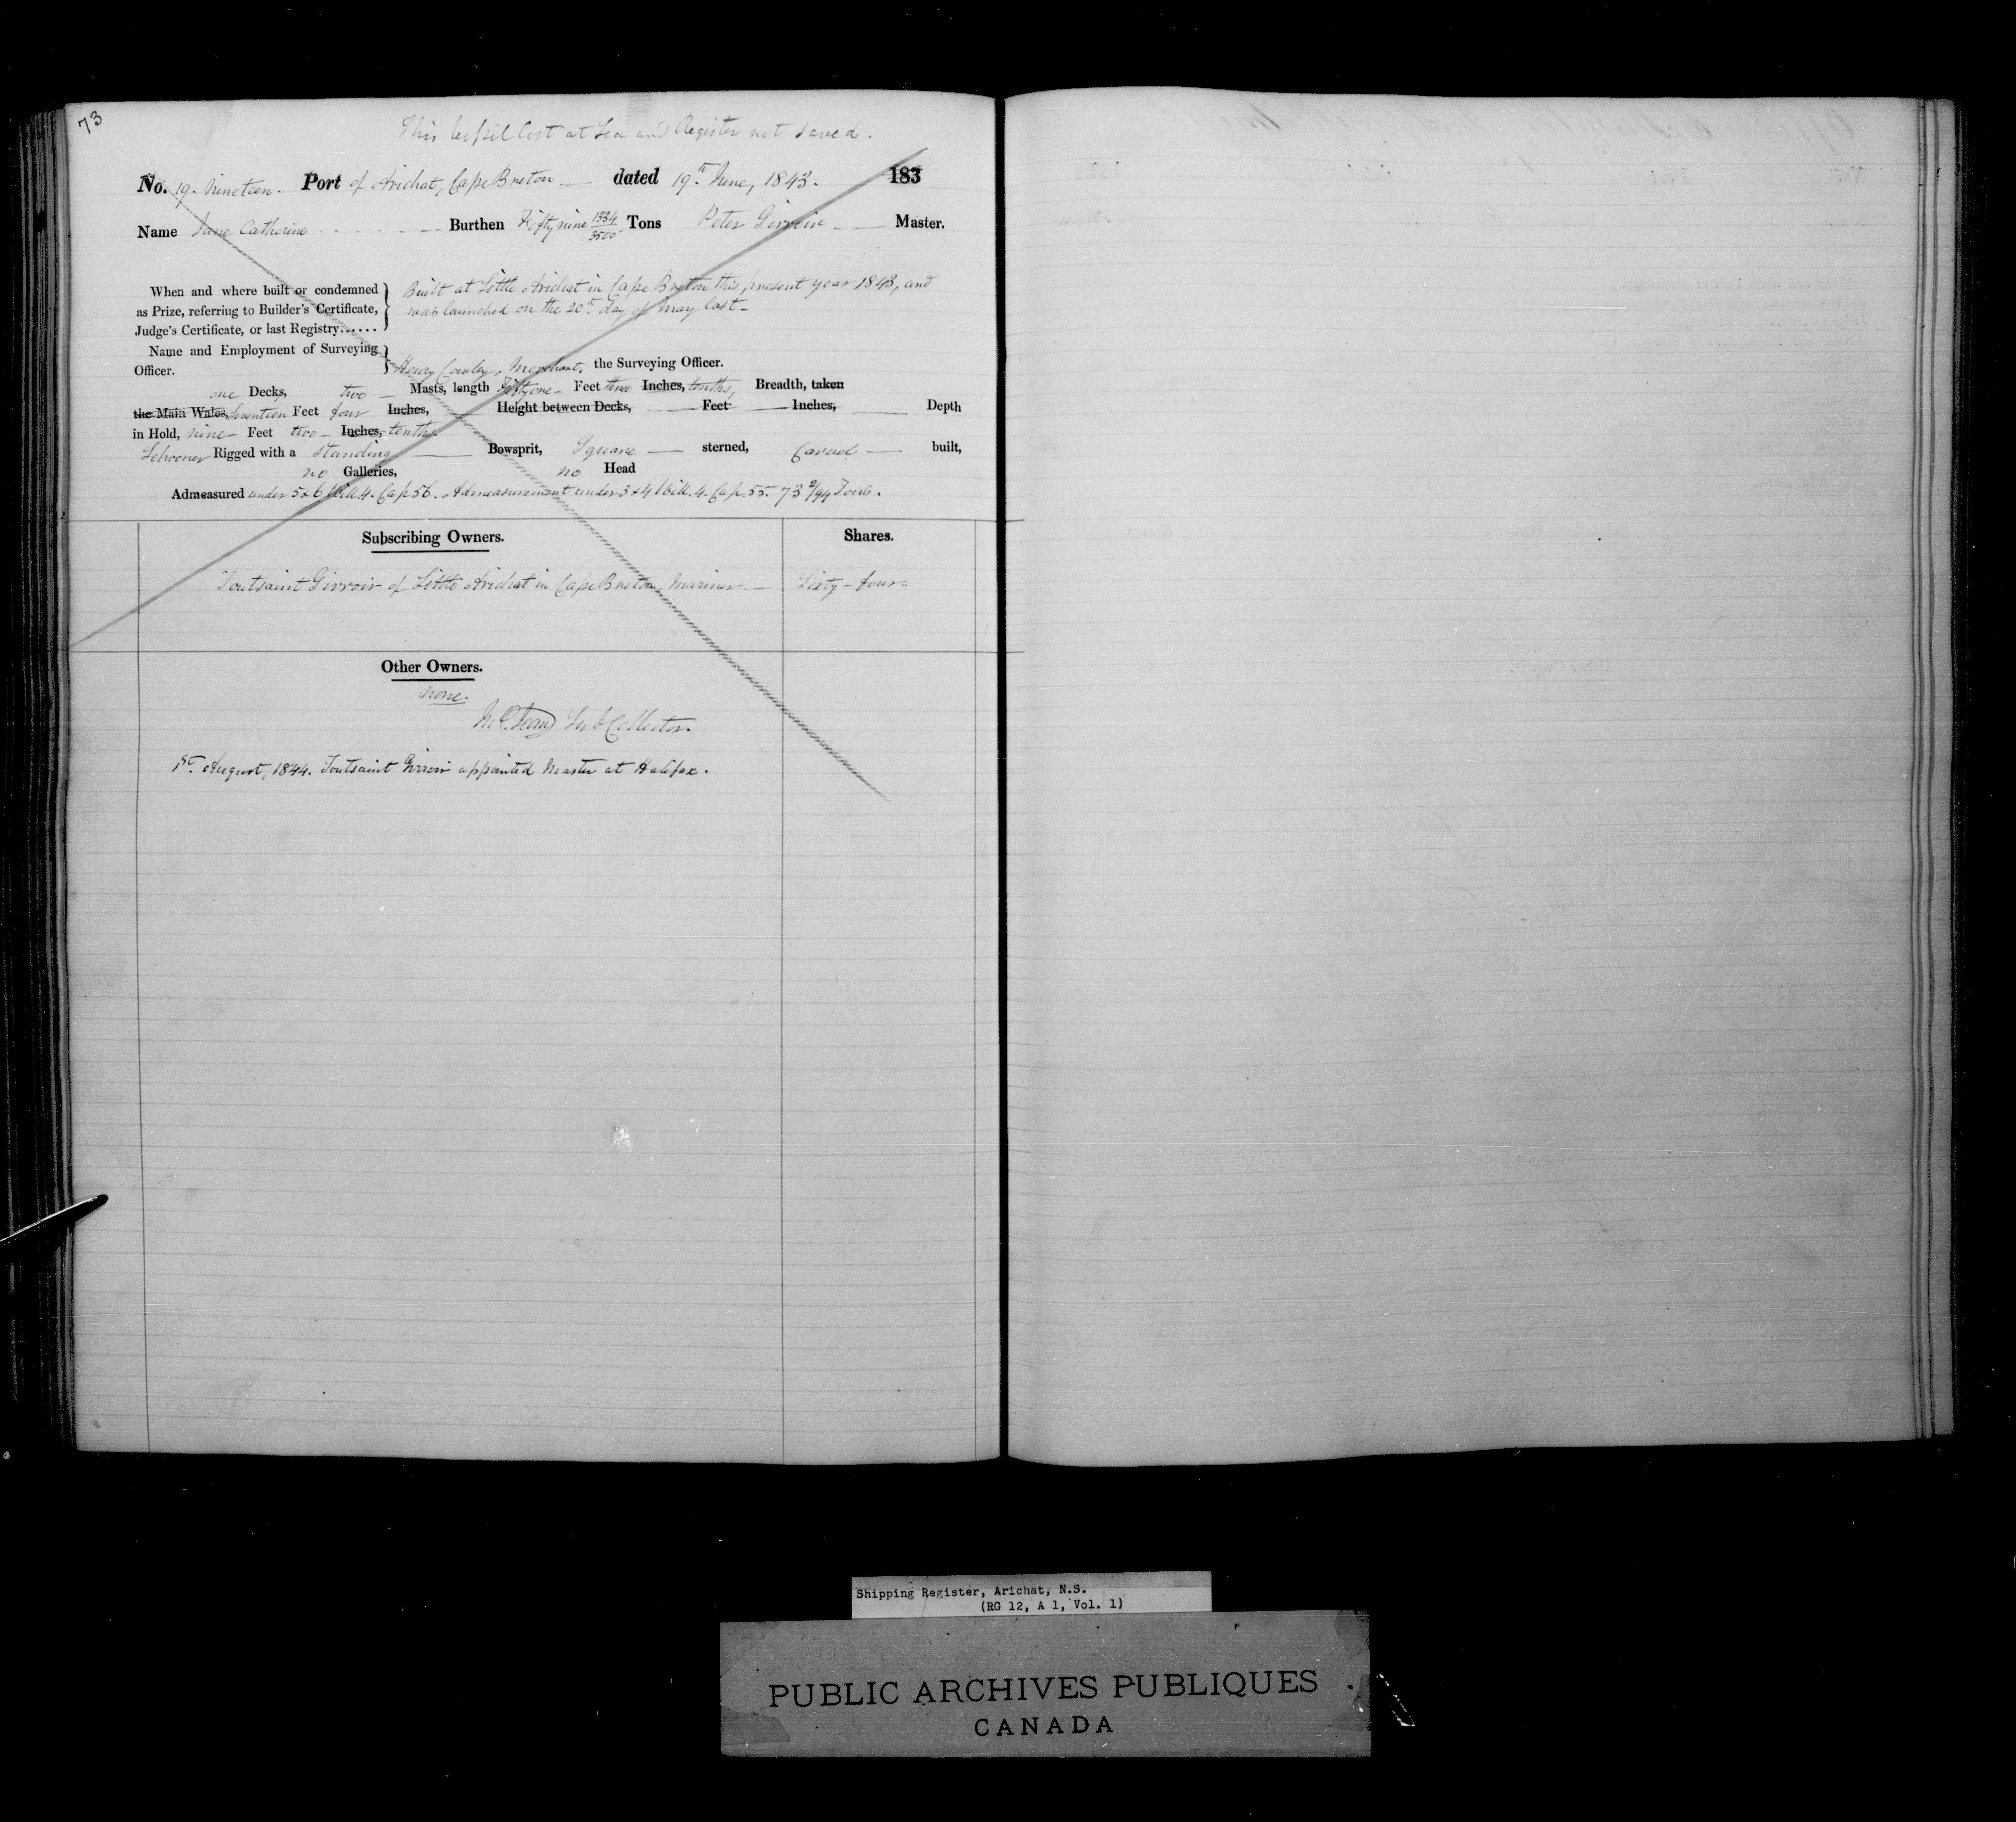 73
This Vessel lost at Sea and Register not saved.
No. 19. Nineteen. Port of Arichat, Cape Breton dated 19th June, 1843. 183
Name Jane Catherine Burthen Fifty nine 1334/3500 Tons Peter Girroir Master.
When and where built or condemned as Prize, referring to Builder's Certificate, Judge's Certificate, or last Registry......
Built at Little Arichat in Cape Breton this present year 1843, and
was launched on the 20th day of May last
Name and Employment of Surveying Officer.
Henry, Merchant, the Surveying Officer.
one Decks, two Masts, length Fifty one Feet three Inches, tenths, Breadth, taken
the Main Wales, Seventeen Feet four Inches, Height between Decks, Feet Inches, Depth
in Hold, nine Feet two Inches, tenths
Schooner Rigged with a standing Bowsprit, Square sterned, Carvel built,
no Galleries, no Head
Admeasured under 5 & 6 Will. 4. Cap 56. Admeasurement under 3 & 4 Will. 4. Cap. 55. 73 2/94 Tons.
Subscribing Owners. Shares.
Toutsaint Girroir of Little Arichat in Cape Breton, Mariner Sixty-four
Other Owners.
none.
Sub Collector.
1st August, 1844. Toutsaint Girroir appointed Master at Halifax.
Shipping Register, Arichat, N.S.
(RG 12, A 1, Vol. 1)
PUBLIC ARCHIVES PUBLIQUES
CANADA